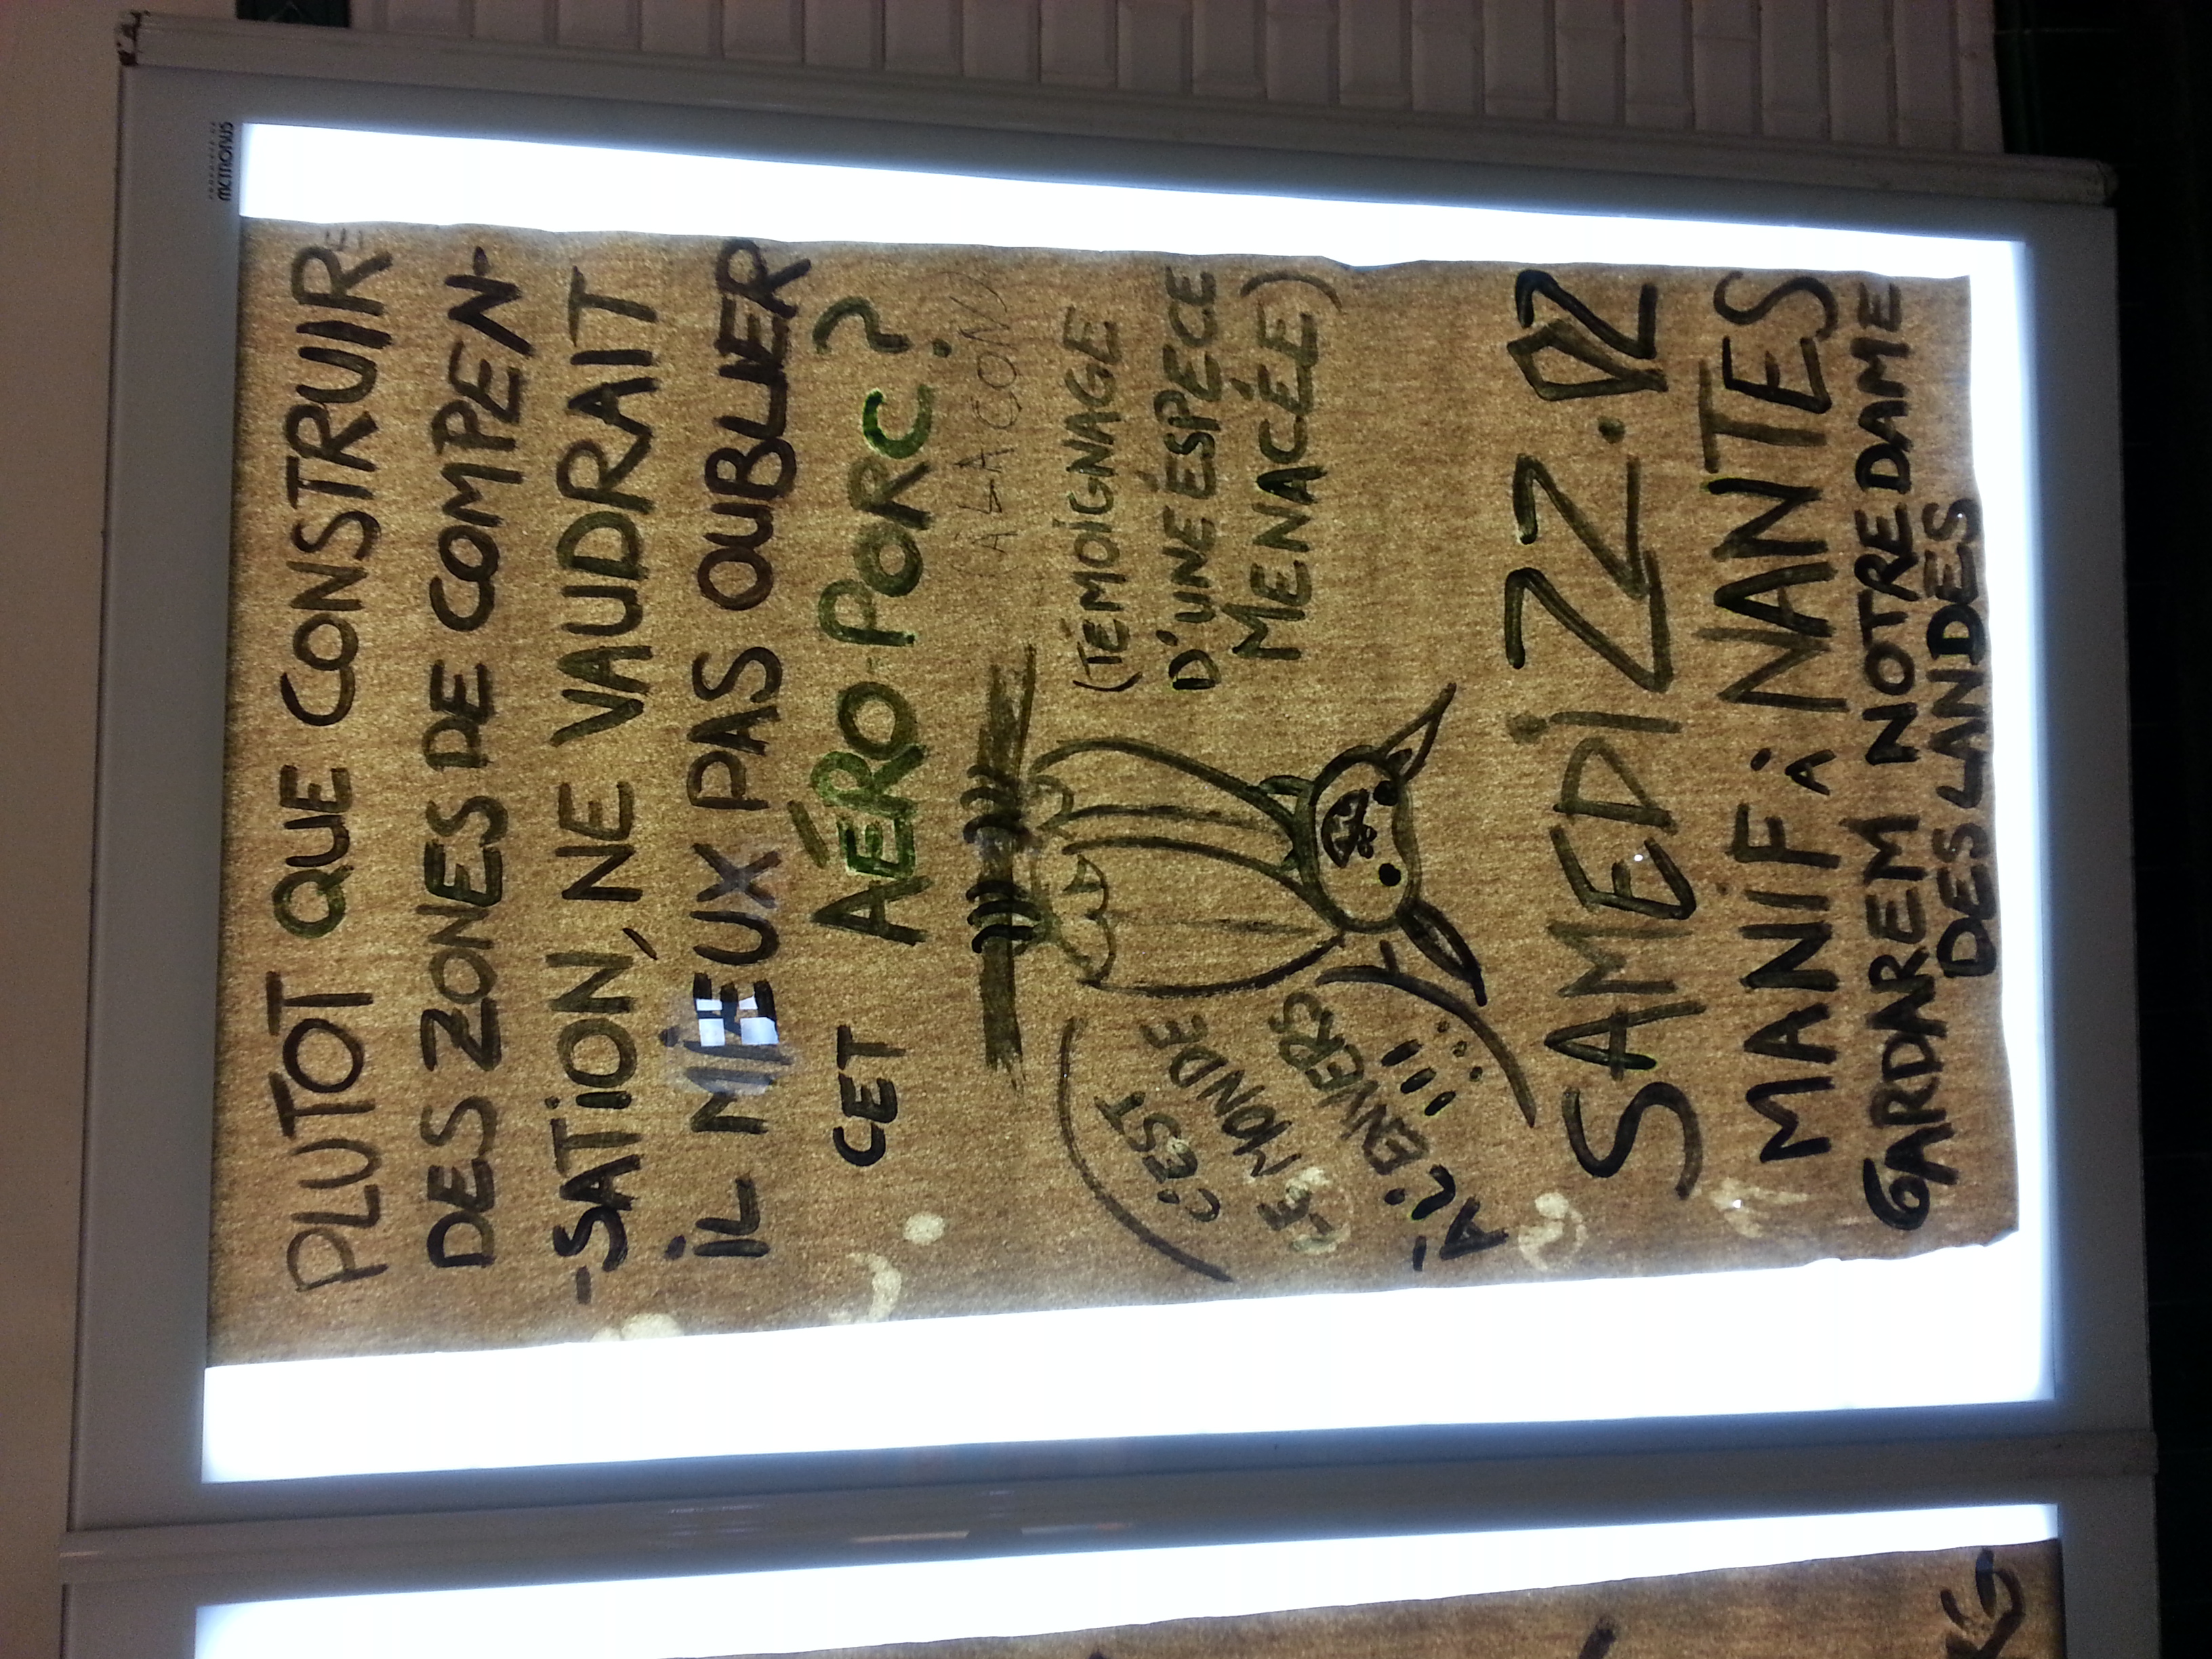 PLUTOT QUE CONSTRUIRE
DES ZONES DE COMPEN-
-SATION, NE VAUDRAIT
IL MIEUX PAS OUBLIER
CET AÉRO-PORC ?
(À LA CON)
(TÉMOIGNAGE
D'UNE ÉSPECE
MENACÉE)
C'EST
LE MONDE
À L'ENVERS
!!!
SAMEDI 22.02
MANIF À NANTES
GARDAREM NOTRE DAME
DES LANDES
METROBUS